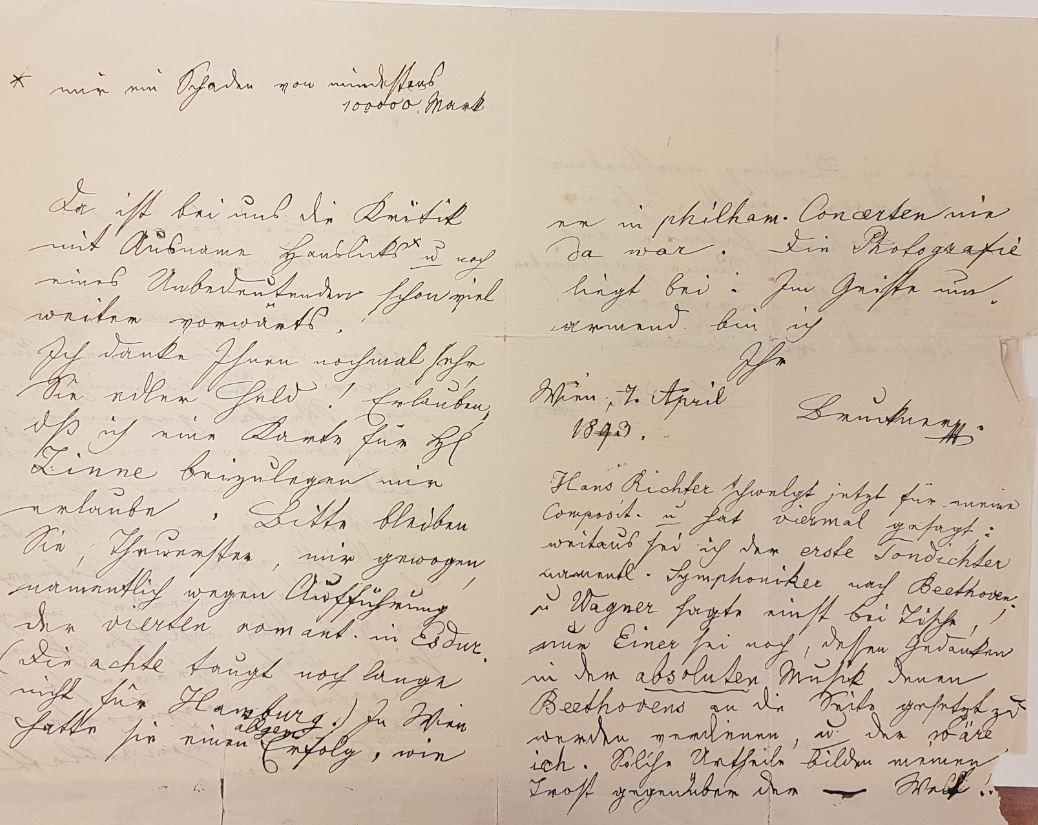 * mir ein Schaden von mindestens
100000. Mark
Da ist bei uns die Kritik
mit Ausname Hanslicks* u noch
eines Unbedeutenden schon viel
weiter vorwärts.
Ich danke Ihnen nochmal sehr
Sie edler Held! Erlauben,
dß ich eine Karte für H
Zinne beizulegen mir
erlaube. Bitte bleiben
Sie, Theuerster, mir gewogen,
namentlich wegen Aufführung
der vierten romant. in Esdur.
(Die achte taugt noch lange
nicht für Hamburg.) In Wien
hatte sie einen allgem Erfolg, wie
er in philham. Concerten nie
da war. Die Photografie
liegt bei. Im Geiste um-
armend bin ich
Ihr
Wien, 7. April
1893.
Bruckner.
Hans Richter schwelgt jetzt für meine
Composit. u hat viermal gesagt:
weitaus sei ich der erste Tondichter
namentl. Symphoniker nach Beethoven.
u Wagner sagte einst bei Tische,
nur Einer sei noch, dessen Gedanken
in der absoluten Musik denen
Beethovens an die Seite gesetzt zu
werden verdienen, u der wäre
ich. Solche Urtheile bilden meinen
Trost gegenüber der — Welt!